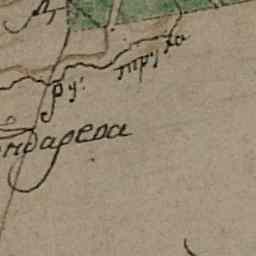 ру: труха
ндарева